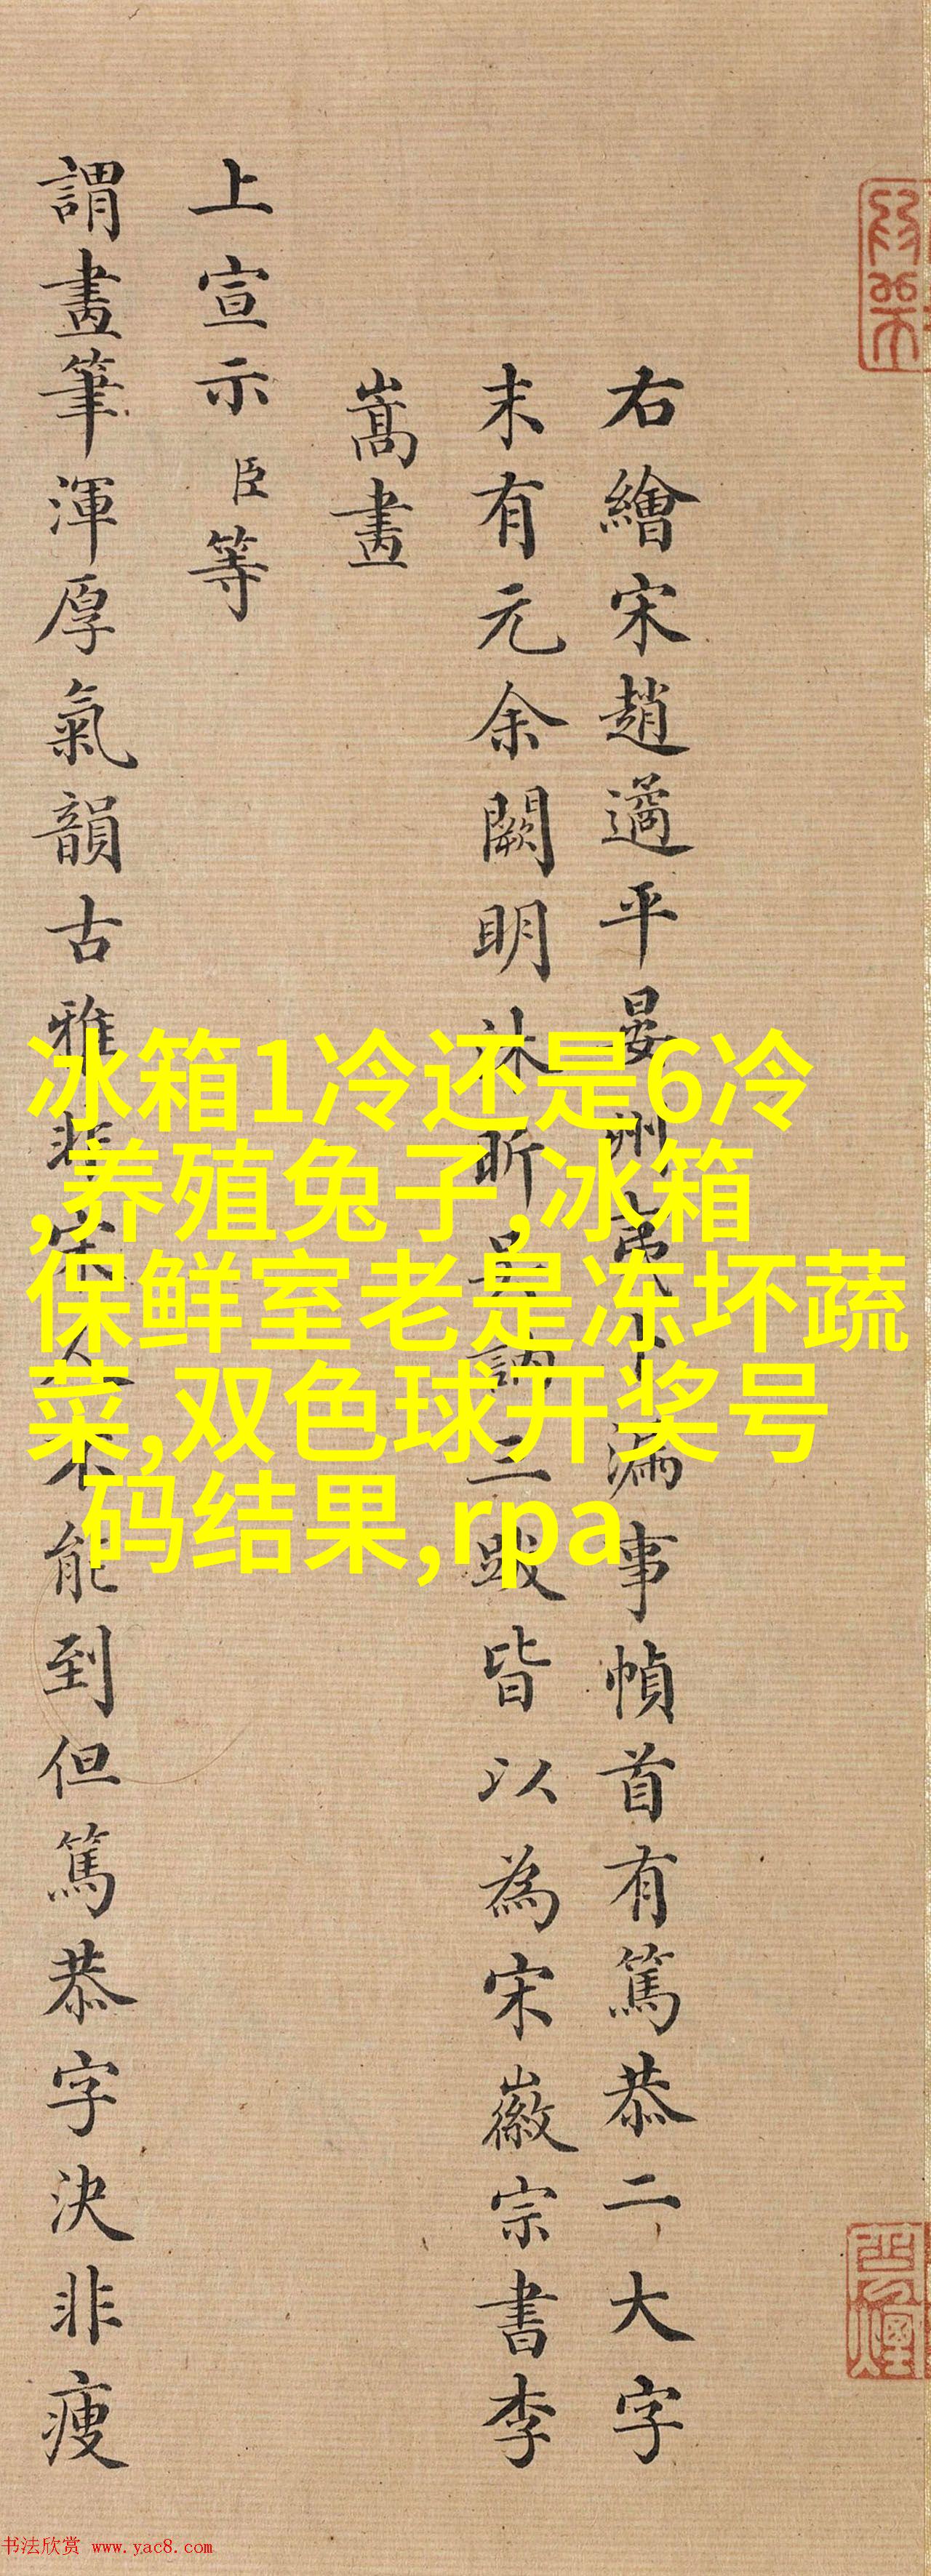 右繪宋趙遹平晏州夷卜漏事幀首有篤恭二大字
末有元余闕明林昕吳訥三跋皆以為宋徽宗書李
嵩畫
上宣示臣等
謂畫筆渾厚氣韻古雅非宋人不能到但篤恭字決非瘦
冰箱1冷还是6冷
,养殖兔子,冰箱
保鲜室老是冻坏蔬
菜,双色球开奖号
码结果,rpa
书法欣赏 www.yac8.com